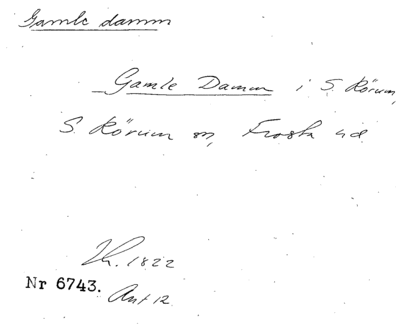 Gamle damm
Gamle Damm i S. Rörum,
S. Rörum sn, Frosta hd
1822
Nr 6743.
Ant 12